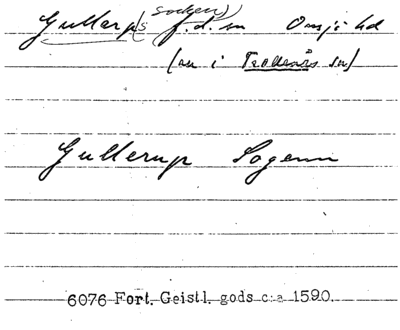 Gullarp(s socken) f.d. sn Onsjö hd
(nu i Trollenäs sn)
Gullerup Sogenn
6076 Fort. Geistl. gods c:a 1590.